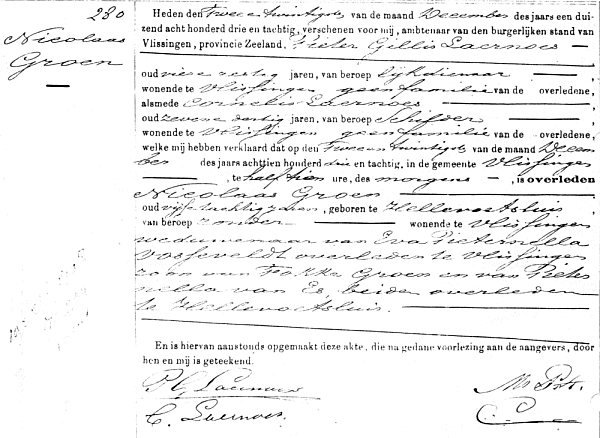 280
Nicolaas
Groen
Heden den Twee en twintigste van de maand December des jaars een dui-
zend acht honderd drie en tachtig, verschenen voor mij, ambtenaar van den burgerlijken stand van
Vlissingen, provincie Zeeland, Pieter Gillis Laernoes
oud vier en zestig jaren, van beroep lijkdienaar,
wonende te Vlissingen geen familie van de overledene,
alsmede Cornelis Laernoes,
oud zeven en dertig jaren, van beroep schilder,
wonende te Vlissingen geen familie van de overledene,
welke mij hebben verklaard dat op den Twee en twintigste van de maand Decem
ber des jaars achttien honderd drie en tachtig, in de gemeente Vlissingen
, te half tien ure, des morgens, is overleden
Nicolaas Groen
oud vijf en tachtig jaren, geboren te Hellevoetsluis
van beroep zonder wonende te Vlissingen
weduwenaar van Eva Pieternella
Vosseveldt overleden te Vlissingen
zoon van Fokke Groen en van Pieter
nella van Es, beiden overleden
te Hellevoetsluis.
En is hiervan aanstonds opgemaakt deze akte, die na gedane voorlezing aan de aangevers, door
hen en mij is geteekend.
P. G. Laernoes
C. Laernoes.